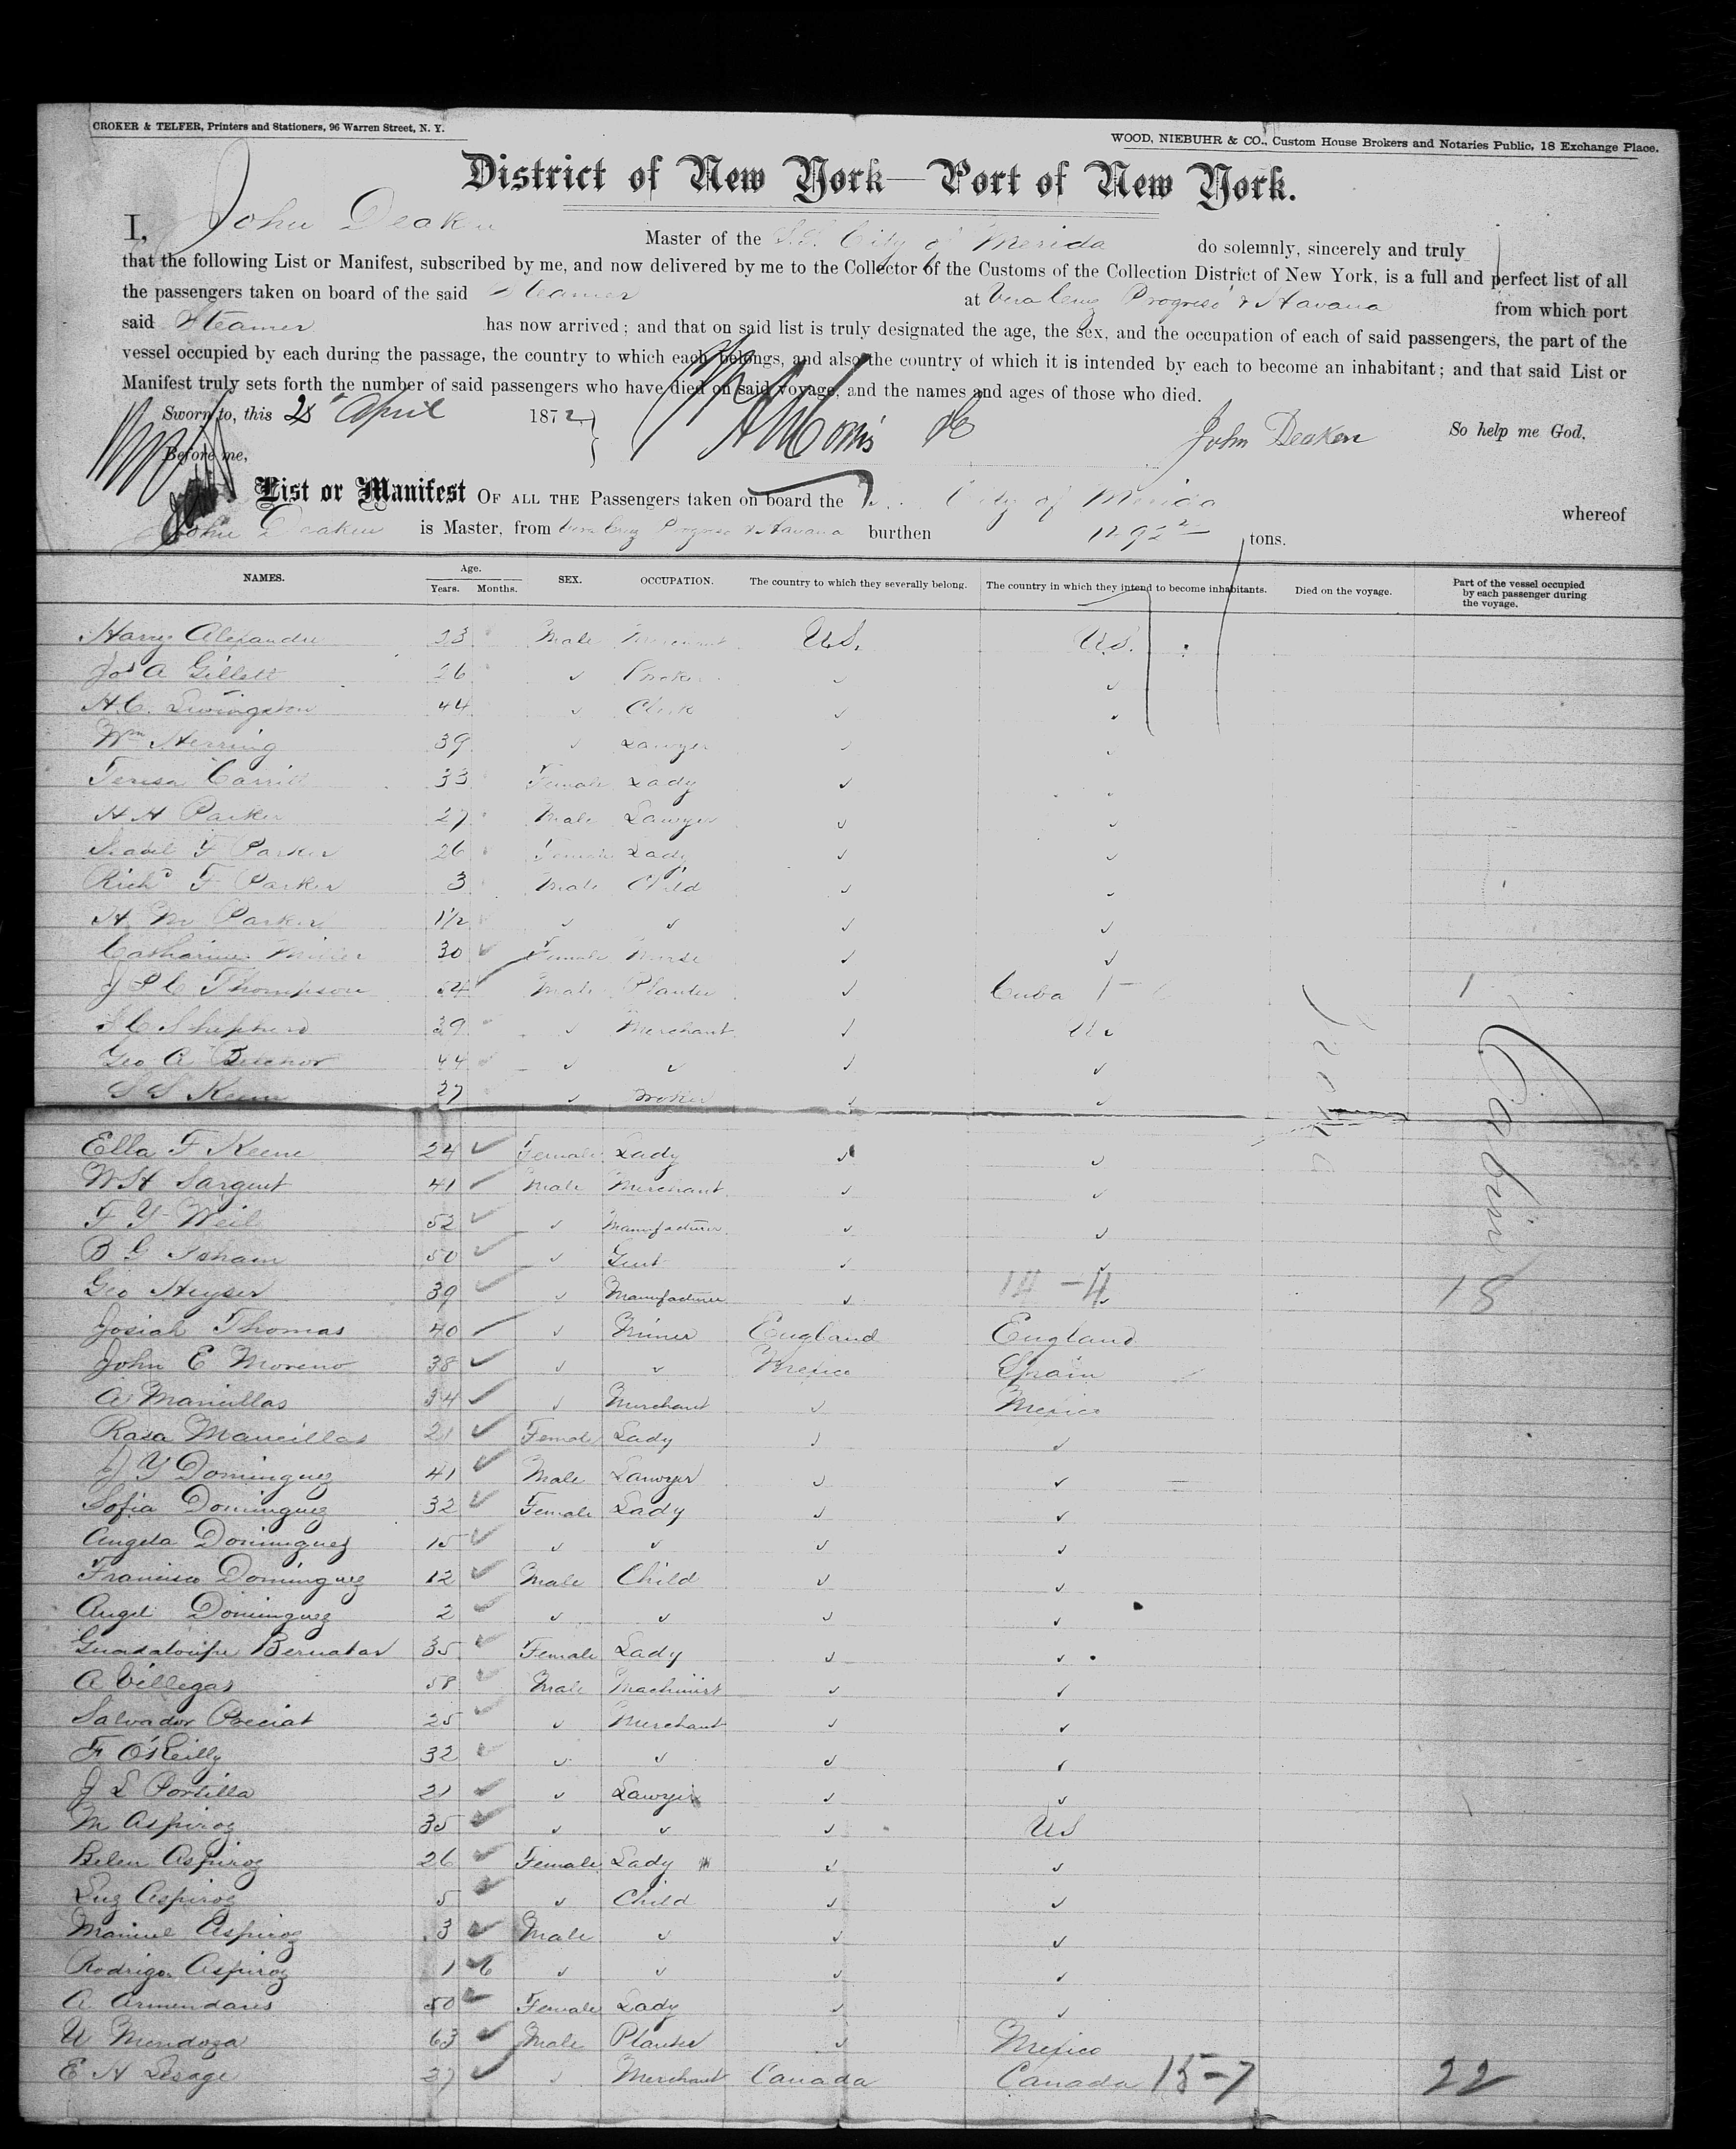 CROKER & TELFER, Printers and Stationers, 96 Warren Street, N. Y.
WOOD, NIEBUHR & CO., Custom House Brokers and Notaries Public, 18 Exchange Place.
District of New York—Port of New York.
I, John Deaken Master of the S.S. City of Merida do solemnly, sincerely and truly
that the following List or Manifest, subscribed by me, and now delivered by me to the Collector of the Customs of the Collection District of New York, is a full and perfect list of all
the passengers taken on board of the said Steamer at Vera Cruz Progreso & Havana from which port
said Steamer has now arrived; and that on said list is truly designated the age, the sex, and the occupation of each of said passengers, the part of the
vessel occupied by each during the passage, the country to which each belongs, and also the country of which it is intended by each to become an inhabitant; and that said List or
Manifest truly sets forth the number of said passengers who have died on said voyage, and the names and ages of those who died.
Sworn to, this April 1872 John Deaken So help me God,
Before me,
List or Manifest OF ALL THE Passengers taken on board the City of Merida whereof
John Deaken is Master, from Vera Cruz Progreso & Havana burthen tons.
NAMES. Age. Years. Months. SEX. OCCUPATION. The country to which they severally belong. The country in which they intend to become inhabitants. Died on the voyage. Part of the vessel occupied by each passenger during the voyage.
Harry Alexander 33 Male Merchant U.S. U.S.
Jos A Gillett 26 ✓ Broker ✓ ✓
H.C. Livingston 44 ✓ Clerk ✓ ✓
Wm Herring 39 ✓ Lawyer ✓ ✓
Teresa 33 Female Lady ✓ ✓
H H Parker 27 Male Lawyer ✓ ✓
Isabel F Parker 26 Female Lady ✓ ✓
Richd F Parker 3 Male Child ✓ ✓
H M Parker 1½ ✓ ✓ ✓ ✓
Catharine Miller 30 ✓ Female Nurse ✓ ✓
J P C Thompson 54 ✓ Male Planter ✓ Cuba 1
Shepherd 39 ✓ Merchant ✓ U.S.
Geo A 44 ✓ ✓ ✓ ✓
S S Keene 27 ✓ Broker ✓ ✓
Cabin
Ella F Keene 24 ✓ Female Lady ✓ ✓
W H Sargent 41 ✓ Male Merchant ✓ ✓
F Y Weil 52 ✓ ✓ Manufacturer ✓ ✓
B G Isham 50 ✓ ✓ Gent ✓ ✓
Geo Heyser 39 ✓ ✓ Manufacturer ✓ 14-4 ✓ 18
Josiah Thomas 40 ✓ ✓ Miner England England
John E Moreno 38 ✓ ✓ ✓ Mexico Spain
A Mancillas 34 ✓ ✓ Merchant ✓ Mexico
Rasa Mancillas 21 ✓ Female Lady ✓ ✓
J Y Dominguez 41 ✓ Male Lawyer ✓ ✓
Sofia Dominguez 32 ✓ Female Lady ✓ ✓
Angela Dominguez 15 ✓ ✓ ✓ ✓ ✓
Francisco Dominguez 12 ✓ Male Child ✓ ✓
Angel Dominguez 2 ✓ ✓ ✓ ✓ ✓
Guadaloupe 35 ✓ Female Lady ✓ ✓
A Villegas 58 ✓ Male Machinist ✓ ✓
Salvador Preciat 25 ✓ ✓ Merchant ✓ ✓
F O'Reilly 32 ✓ ✓ ✓ ✓ ✓
J L Portilla 21 ✓ ✓ Lawyer ✓ ✓
M Aspiroz 35 ✓ ✓ ✓ ✓ US
Belen Aspiroz 26 ✓ Female Lady ✓ ✓
Luz Aspiroz 5 ✓ ✓ Child ✓ ✓
Manuel Aspiroz 3 ✓ Male ✓ ✓ ✓
Rodrigo Aspiroz 1 6 ✓ ✓ ✓ ✓
A Armendares 50 ✓ Female Lady ✓ ✓
U Mendoza 63 ✓ Male Planter ✓ Mexico
E H Lesage 37 ✓ ✓ Merchant Canada Canada 15-7 22